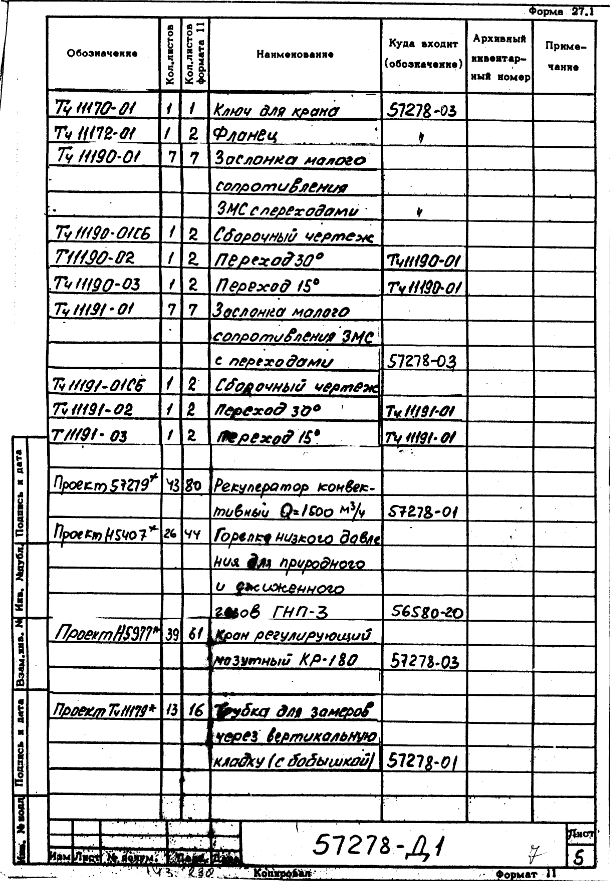 Форма 27.1
Обозначение Кол.листов Кол.листов формата 11 Наименование Куда входит (обозначение) Архивный инвентар- ный номер Приме- чание
Тч 11170-01 1 1 Ключ для крана 57278-03
Тч 11172-01 1 2 Фланец "
Тч 11190-01 7 7 Заслонка малого
сопротивления
ЗМС с переходами "
Тч 11190-01СБ 1 2 Сборочный чертеж
Т11190-02 1 2 Переход 30° Тч11190-01
Тч 11190-03 1 2 Переход 15° Тч 11190-01
Тч 11191-01 7 7 Заслонка малого
сопротивления ЗМС
с переходами 57278-03
Тч 11191-01СБ 1 2 Сборочный чертеж
Тч 11191-02 1 2 Переход 30° Тч 11191-01
Т 11191-03 1 2 Переход 15° Тч 11191-01
Проект 57279* 43 80 Рекуператор конвек-
тивный Q=1600 м³/ч 57278-01
Проект Н5407* 26 44 Горелка низкого давле
ния для природного
и сжиженного
газов ГНП-3 56580-20
Проект Н5977* 39 61 Кран регулирующий
мазутный КР-180 57278-03
Проект Тч11179* 13 16 Трубка для замеров
через вертикальную
кладку (с бобышкой) 57278-01
Инв. № подл. Подпись и дата Взам.инв. № Инв. № дубл. Подпись и дата
Изм Лист № докум. Подп. Дата
57278-Д1
7
Лист
5
Копировал Формат 11